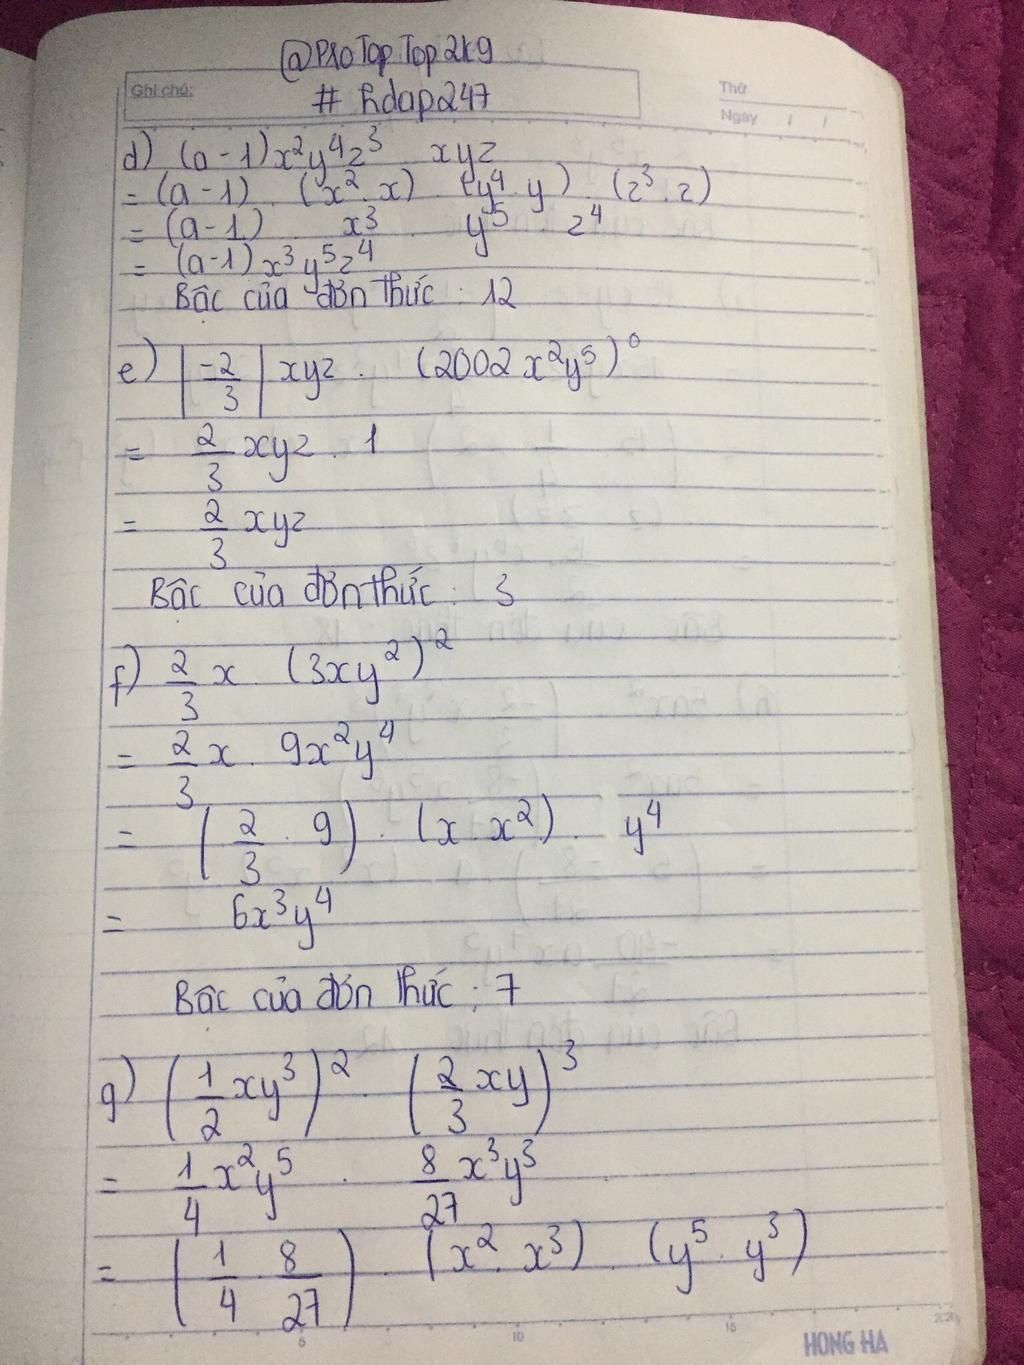 @Pro Top Top 2k9
Ghi chú:
# hdap247
Thứ
Ngày / /
d) (a-1)x²y⁴z³ . xyz
= (a-1) . (x² . x) . (y⁴ . y) . (z³ . z)
= (a-1) . x³ . y⁵ . z⁴
= (a-1)x³y⁵z⁴
Bâc của đơn thức : 12
e) |-2/3| xyz . (2002x²y⁵)⁰
= 2/3 xyz . 1
= 2/3 xyz
Bâc của đơn thức : 3
f) 2/3 x . (3xy²)²
= 2/3 x . 9x²y⁴
= (2/3 . 9) . (x . x²) . y⁴
= 6x³y⁴
Bâc của đơn thức : 7
g) (1/2 xy³)² . (2/3 xy)³
= 1/4 x²y⁵ . 8/27 x³y³
= (1/4 . 8/27) . (x² . x³) . (y⁵ . y³)
5 10 15
HONG HA